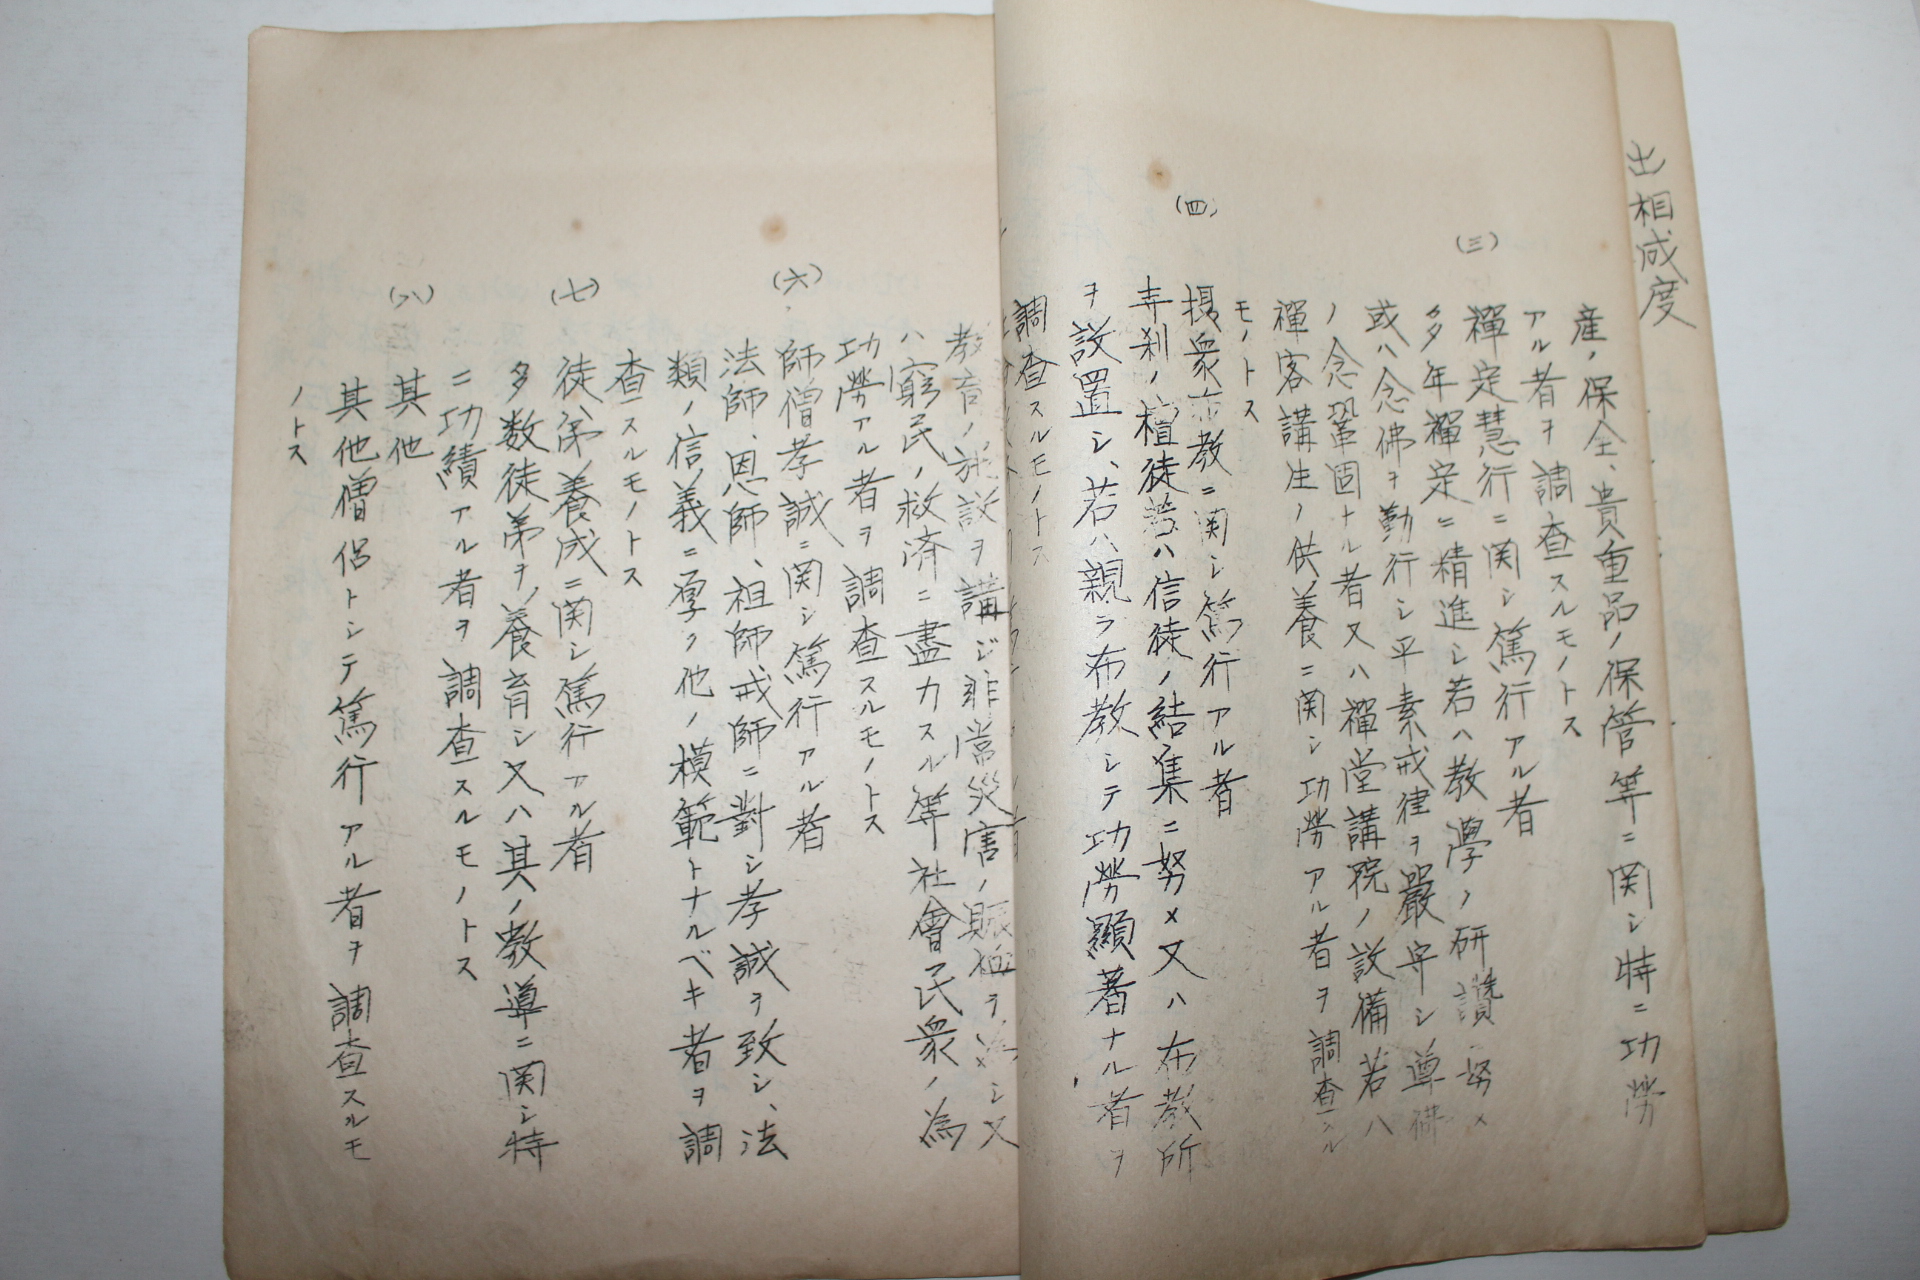 出相成度
産ノ保全、貴重品ノ保管等ニ関シ特ニ功勞
アル者ヲ調査スルモノトス
(三)
禪定慧行ニ関シ篤行アル者
多年禪定ニ精進シ若ハ教學ノ研讃ニ努メ
或ハ念佛ヲ勤行シ平素戒律ヲ嚴守シ
ノ念鞏固ナル者又ハ禪堂講院ノ設備若ハ
禪客講生ノ供養ニ関シ功勞アル者ヲ調査スル
モノトス
(四)
摂衆布教ニ関シ篤行アル者
寺刹ノ檀徒若ハ信徒ノ結集ニ努メ又ハ布教所
ヲ設置シ、若ハ親ラ布教シテ功勞顯著ナル者ヲ
調査スルモノトス
教育ノ施設ヲ講ジ非常災害ノ賑恤ヲ為シ又
ハ窮民ノ救済ニ盡力スル等社會民衆ノ為
功勞アル者ヲ調査スルモノトス
(六)
師僧孝誠ニ関シ篤行アル者
法師、恩師、祖師戒師ニ對シ孝誠ヲ致シ、法
類ノ信義ニ厚ク他ノ模範トナルベキ者ヲ調
査スルモノトス
(七)
徒弟養成ニ関シ篤行アル者
多数徒弟ヲ養育シ又ハ其ノ教導ニ関シ特
ニ功績アル者ヲ調査スルモノトス
(八)
其他
其他僧侶トシテ篤行アル者ヲ調査スルモ
ノトス